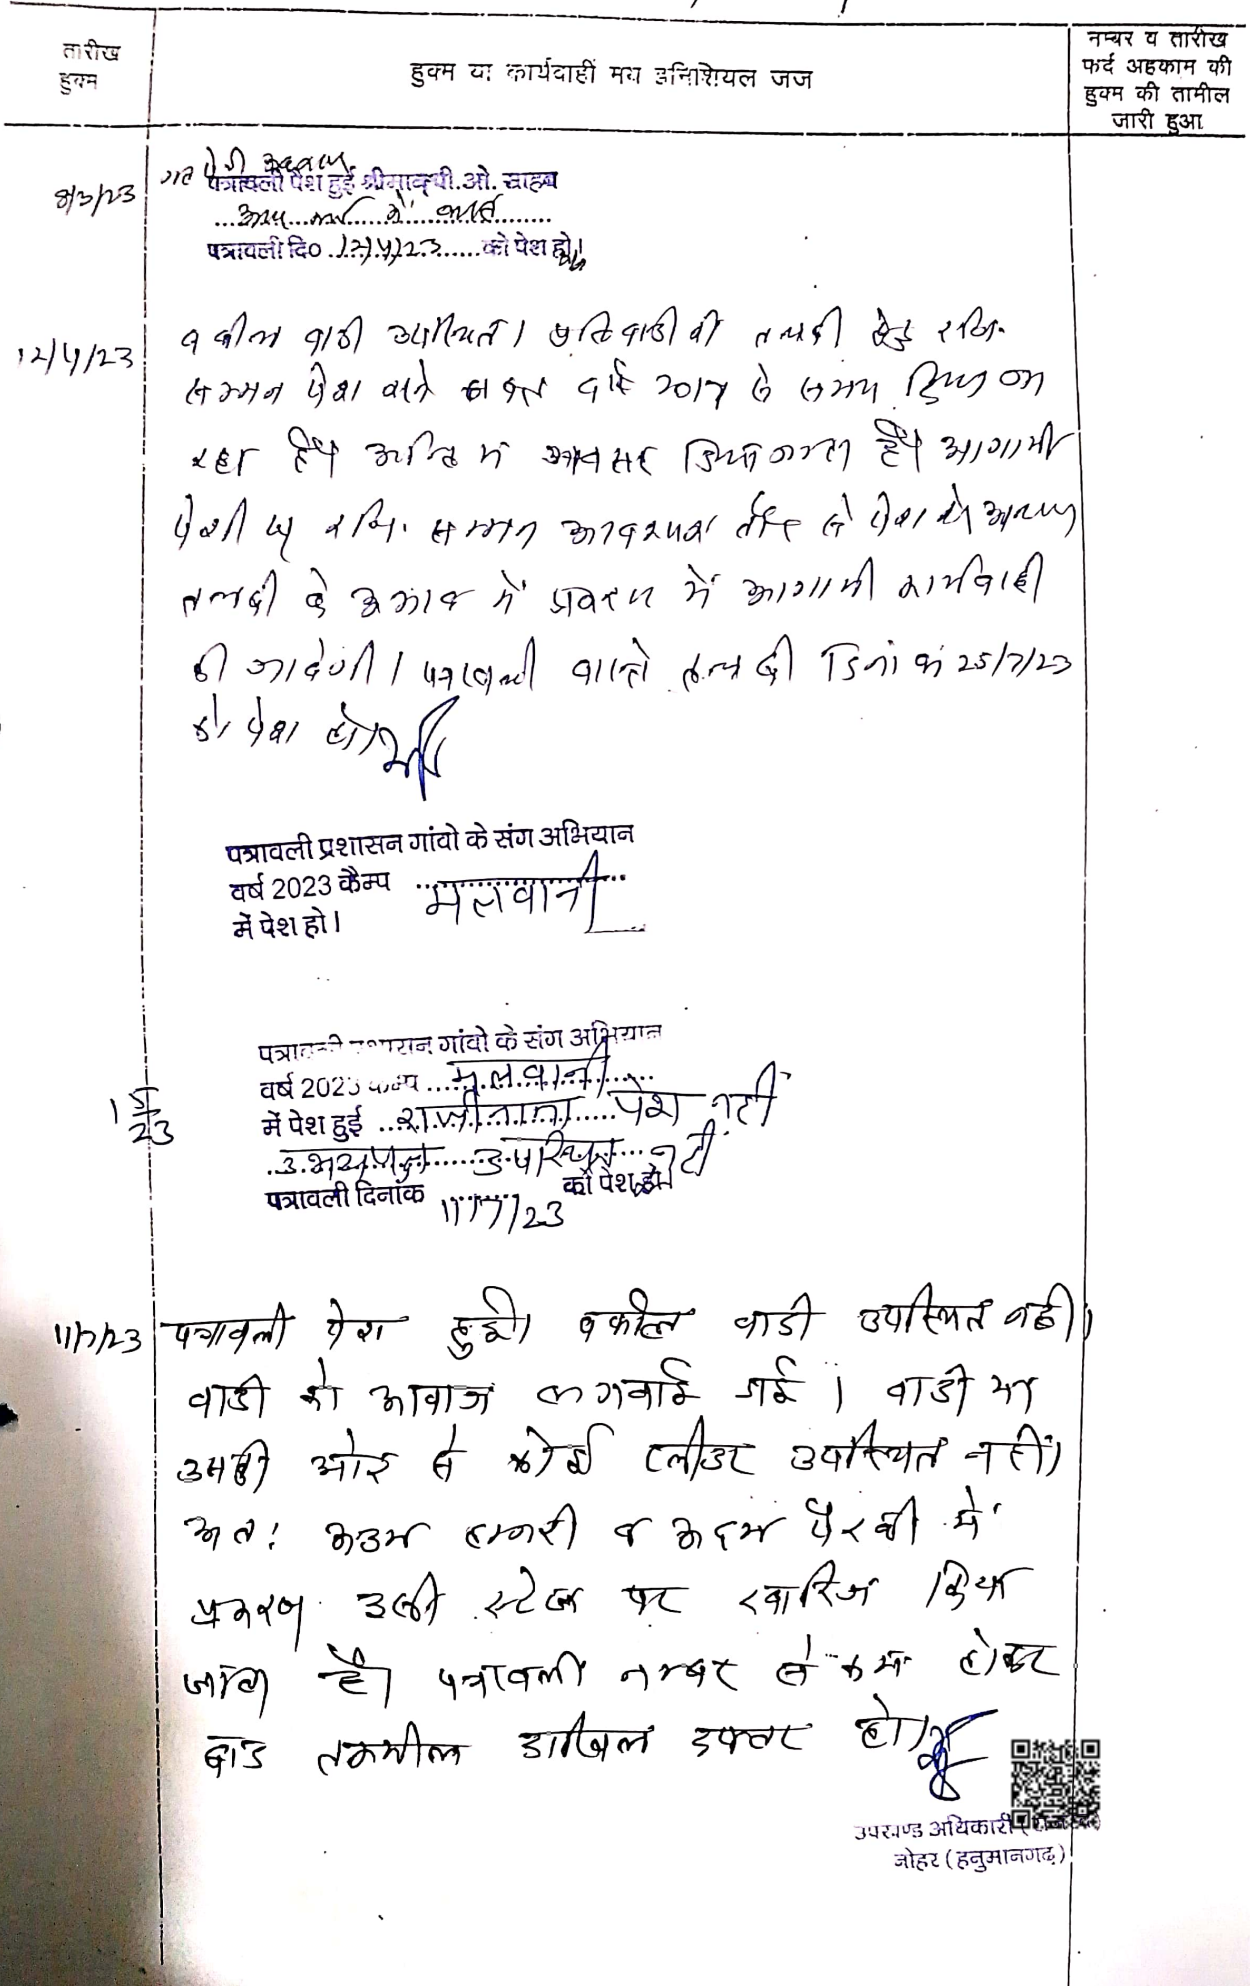 तारीख
हुक्म
हुक्म या कार्यवाही मय इनिशियल जज
नम्बर व तारीख
फर्द अहकाम की
हुक्म की तामील
जारी हुआ
8/3/23
पत्रावली पेश हुई श्रीमान् पी.ओ. साहब
पत्रावली दि० 12/4/23 को पेश हो।
12/4/23
वकील वादी उपस्थित। प्रतिवादी की तलबी हेतु रजि.
सम्मन पेश करने वर्ष 2017 से समय दिया जा
रहा है। अन्तिम अवसर दिया जाता है। आगामी
पेशी पर रजि. सम्मन आवश्यक तौर से पेश करे अन्यथा
तलबी के अभाव में प्रकरण में आगामी कार्यवाही
की जावेगी। पत्रावली वास्ते तलबी दिनांक 25/7/23
को पेश हो।
पत्रावली प्रशासन गांवो के संग अभियान
वर्ष 2023 कैम्प मलवानी
में पेश हो।
पत्रावली प्रशासन गांवो के संग अभियान
वर्ष 2023 कैम्प मलवानी
1/5/23
में पेश हुई राजीनामा पेश नही
उभयपक्ष उपस्थित नही
पत्रावली दिनांक 11/7/23 को पेश हो।
11/7/23
पत्रावली पेश हुई। वकील वादी उपस्थित नही।
वादी को आवाज लगवाई गई। वादी या
उसकी ओर से कोई प्लीडर उपस्थित नहीं।
अत: अदम हाजरी व अदम पैरवी में
प्रकरण इसी स्टेज पर खारिज किया
जाता है। पत्रावली नम्बर से कम होकर
बाद तकमील दाखिल दफ्तर हो।
उपखण्ड अधिकारी
नोहर (हनुमानगढ़)